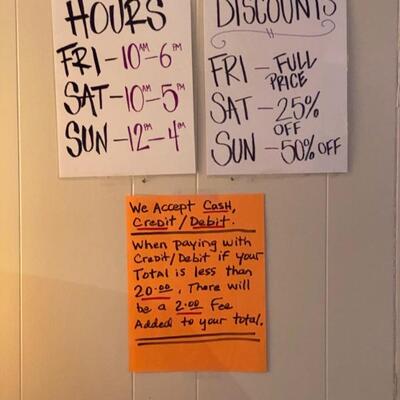 HOURS
FRI - 10AM - 6PM
SAT - 10AM - 5PM
SUN - 12PM - 4PM
DISCOUNTS
FRI - FULL
PRICE
SAT - 25%
OFF
SUN - 50% OFF
We Accept Cash,
Credit/Debit.
When paying with
Credit/Debit if your
Total is less than
20.00, There will
be a 2.00 Fee
Added to your total.